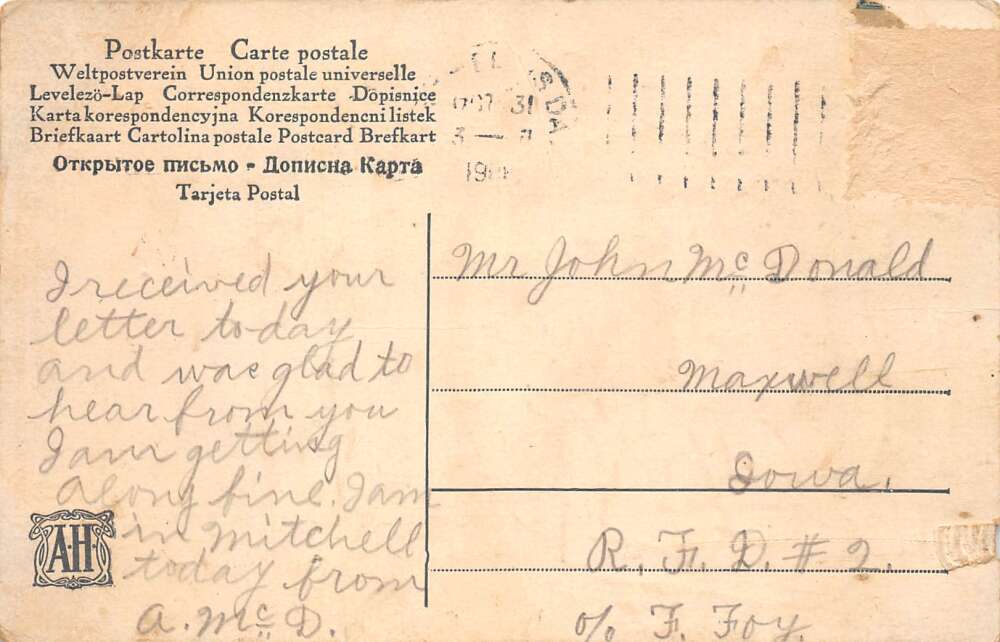 Postkarte Carte postale
Weltpostverein Union postale universelle
Levelező-Lap Correspondenzkarte Dopisnice
Karta korespondencyjna Korespondencni listek
Briefkaart Cartolina postale Postcard Brefkort
Открытое письмо - Дописна Карта
Tarjeta Postal
S.DA
OCT 31
3 —
19
I received your
letter to-day
and was glad to
hear from you
I am getting
along fine. I am
in Mitchell
today from
A. McD.
A·H
Mr John McDonald
Maxwell
Iowa.
R. F. D. # 2.
c/o F. Foy.